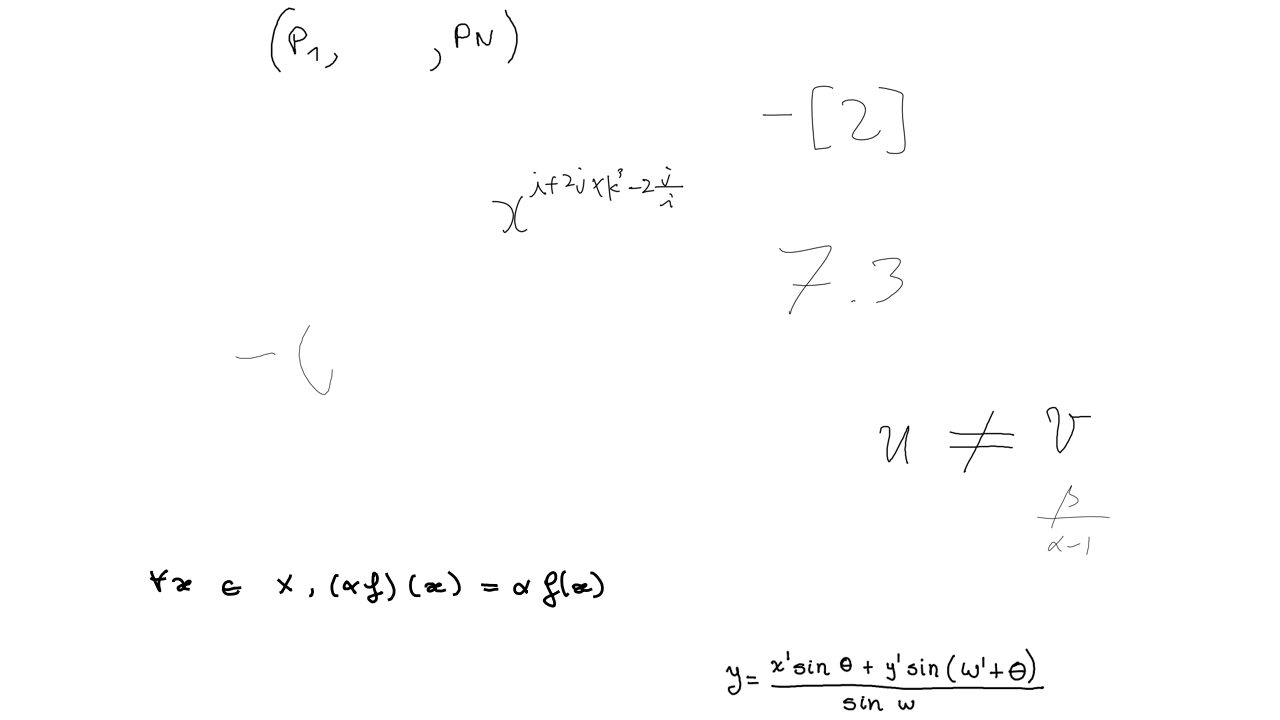 (P₁,     , P_N)
-[2]
x^{i+2j×k³-2\frac{j}{i}}
7.3
-(
u ≠ v
\frac{β}{α-1}
∀x ∈ X, (αf)(x) = αf(x)
y = \frac{x' sin θ + y' sin (ω'+θ)}{sin ω}